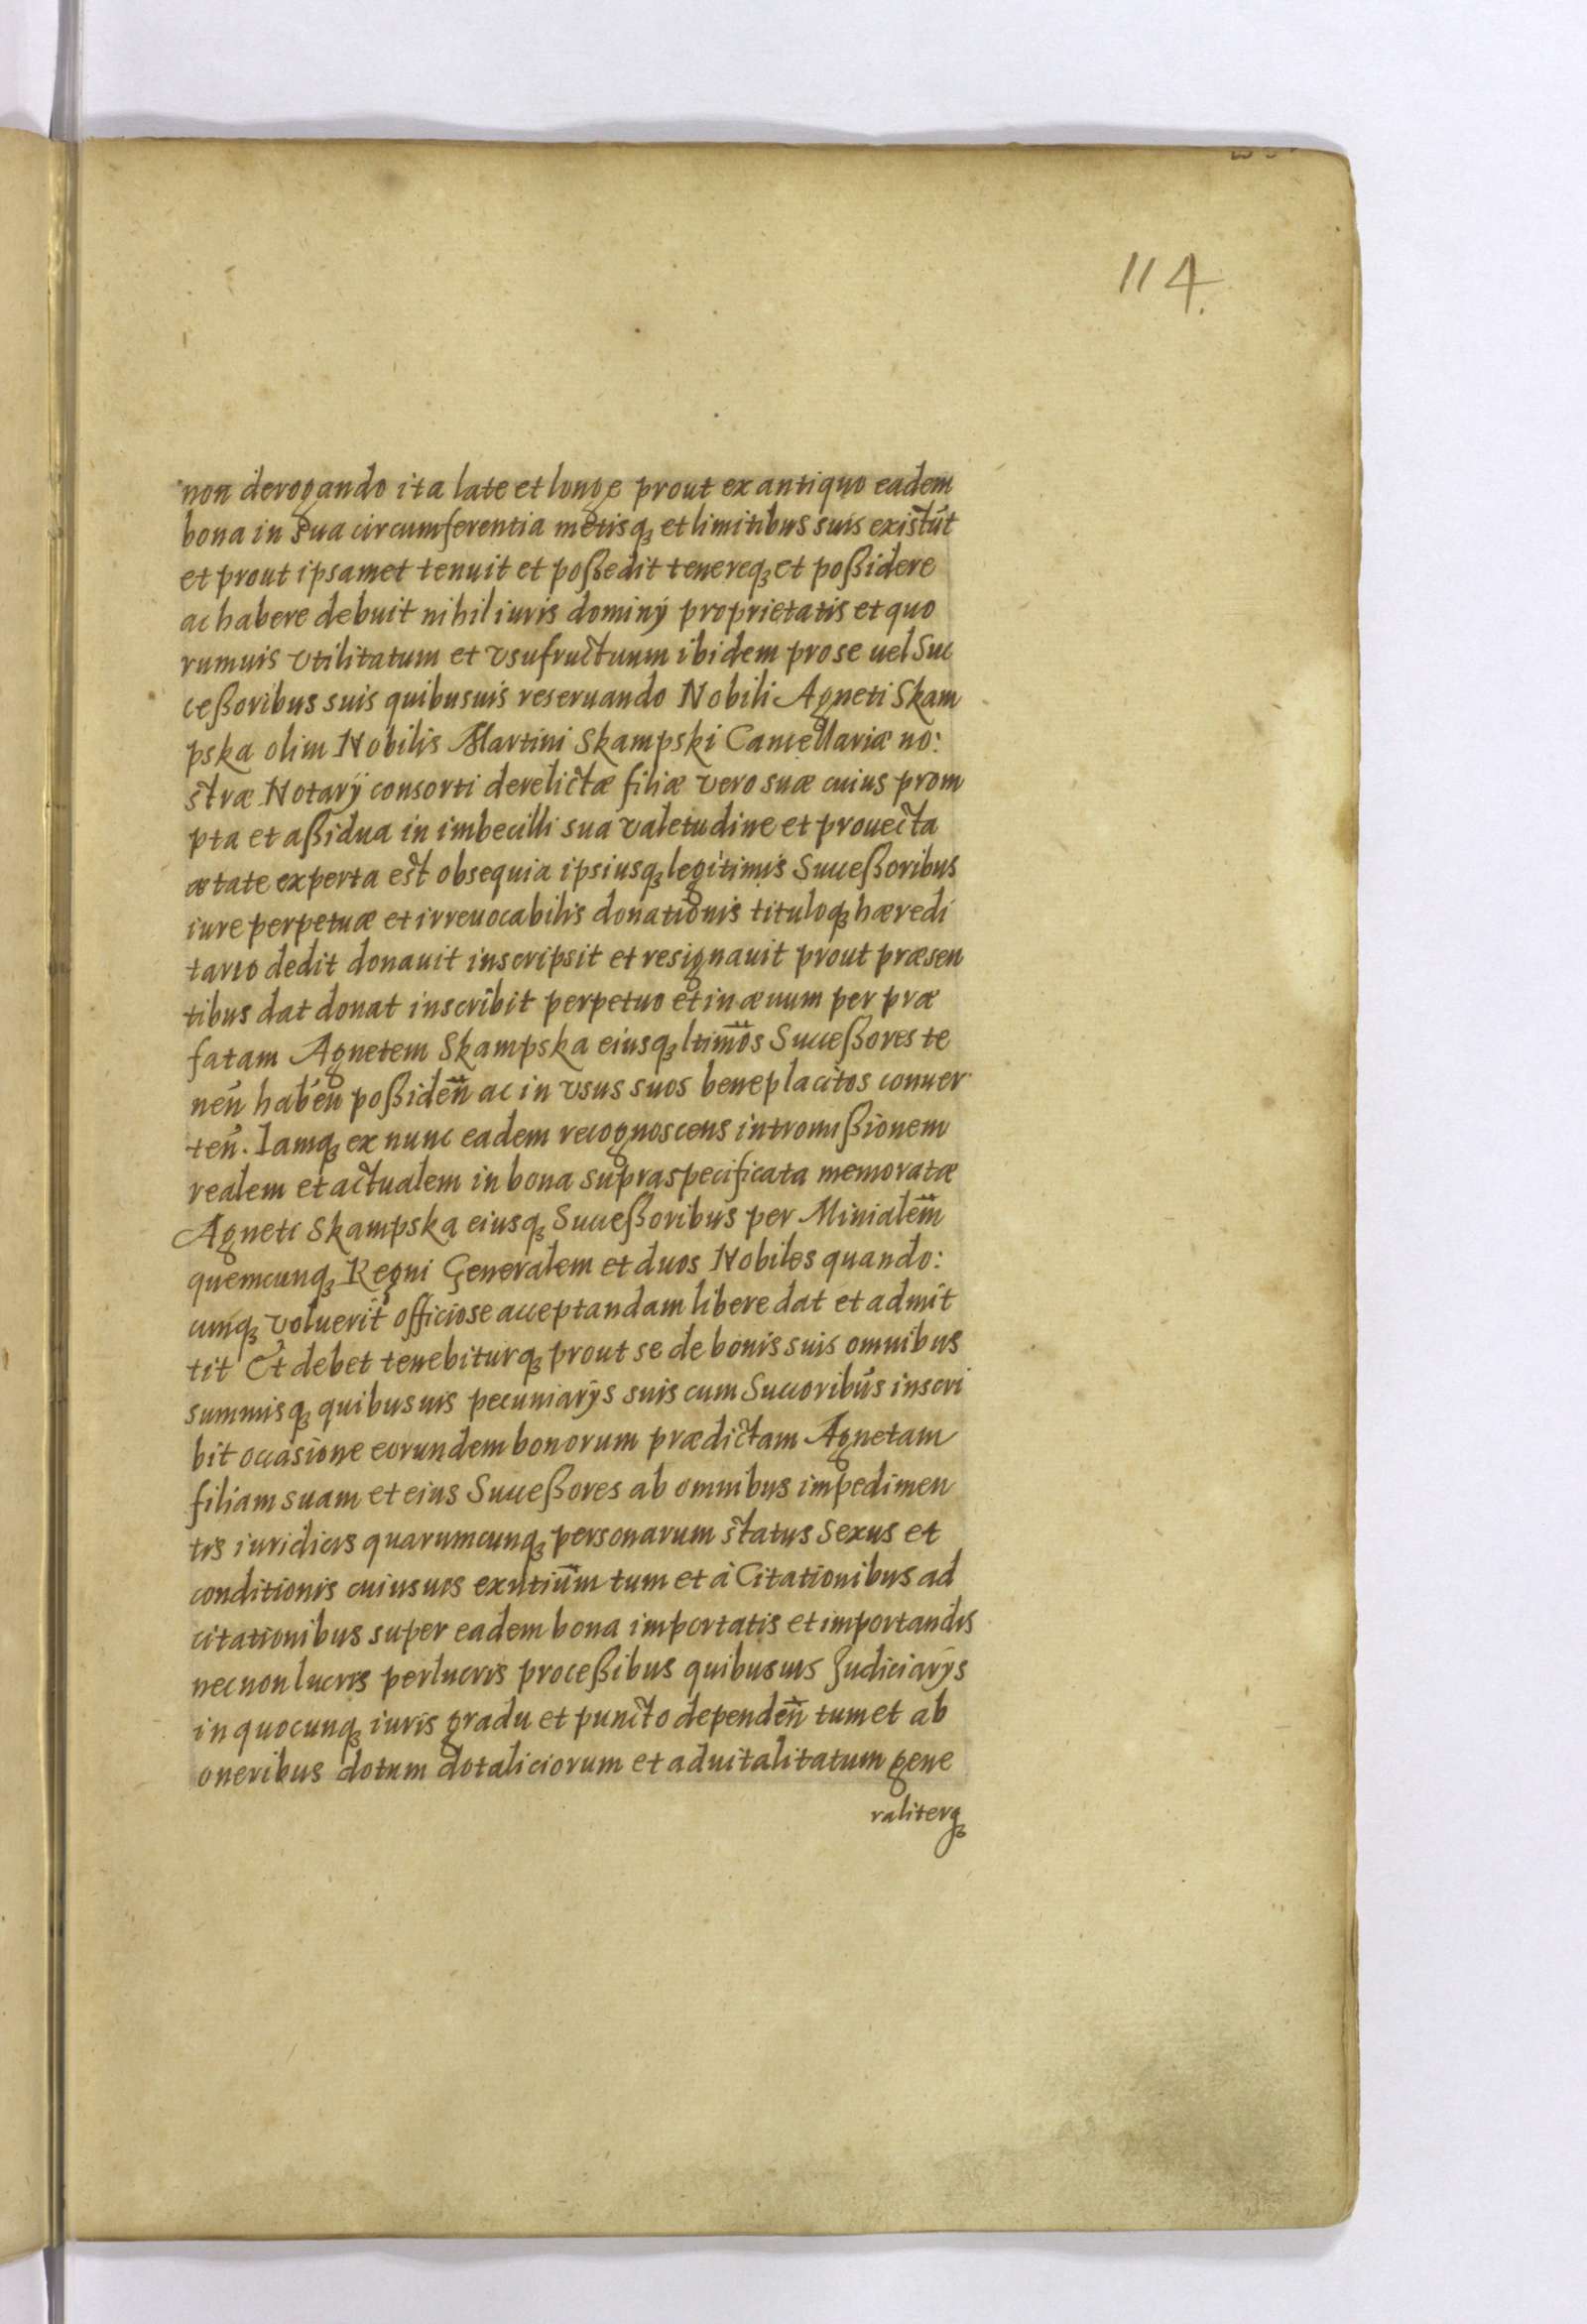 114.
non derogando ita late et longe prout ex antiquo eadem
bona in sua circumferentia metisq₃ et limitibus suis existūt
et prout ipsamet tenuit et poßedit tenereq₃ et poßidere
ac habere debuit nihil iuris dominÿ proprietatis et quo
rumuis vtilitatum et vsufructuum ibidem pro se uel Suc
ceßoribus suis quibusuis reseruando Nobili Agneti Skam
pska olim Nobilis Martini Skampski Cancellariæ no:
stræ Notarÿ consorti derelictæ filiæ vero suæ cuius prom
pta et aßidua in imbecilli sua valetudine et prouecta
ætate experta est obsequia ipsiusq₃ legitimis Succeßoribus
iure perpetuæ et irreuocabilis donationis tituloq₃ hæredi
tario dedit donauit inscripsit et resignauit prout præsen
tibus dat donat inscribit perpetuo et in æuum per præ
fatam Agnetem Skampska eiusq₃ ltim̃os Succeßores te
neñ habeñ poßideñ ac in vsus suos beneplacitos conuer
teñ. Iamq₃ ex nunc eadem recognoscens intromißionem
realem et actualem in bona supraspecificata memoratæ
Agneti Skampska eiusq₃ Succeßoribus per Minialem̃
quemcunq₃ Regni Generalem et duos Nobiles quando:
cunq₃ voluerit officiose acceptandam libere dat et admit
tit Et debet tenebiturq₃ prout se de bonis suis omnibus
summisq₃ quibusuis pecuniarÿs suis cum Succoribūs inscri
bit occasione eorundem bonorum prædictam Agnetam
filiam suam et eius Succeßores ab omnibus impedimen
tis iuridicis quarumcunq₃ personarum status Sexus et
conditionis cuiusuis exntiūm tum et à Citationibus ad
citationibus super eadem bona importatis et importandis
necnon lucris perlucris proceßibus quibusuis Judiciarÿs
in quocunq₃ iuris gradu et puncto dependeñ tum et ab
oneribus dotum dotaliciorum et aduitalitatum gene
raliterq₃